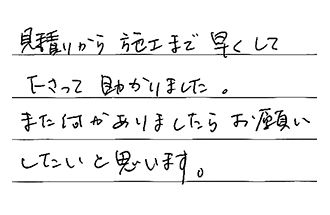 見積りから 施工まで 早くして
下さって 助かりました。
また何かありましたら お願い
したいと思います。